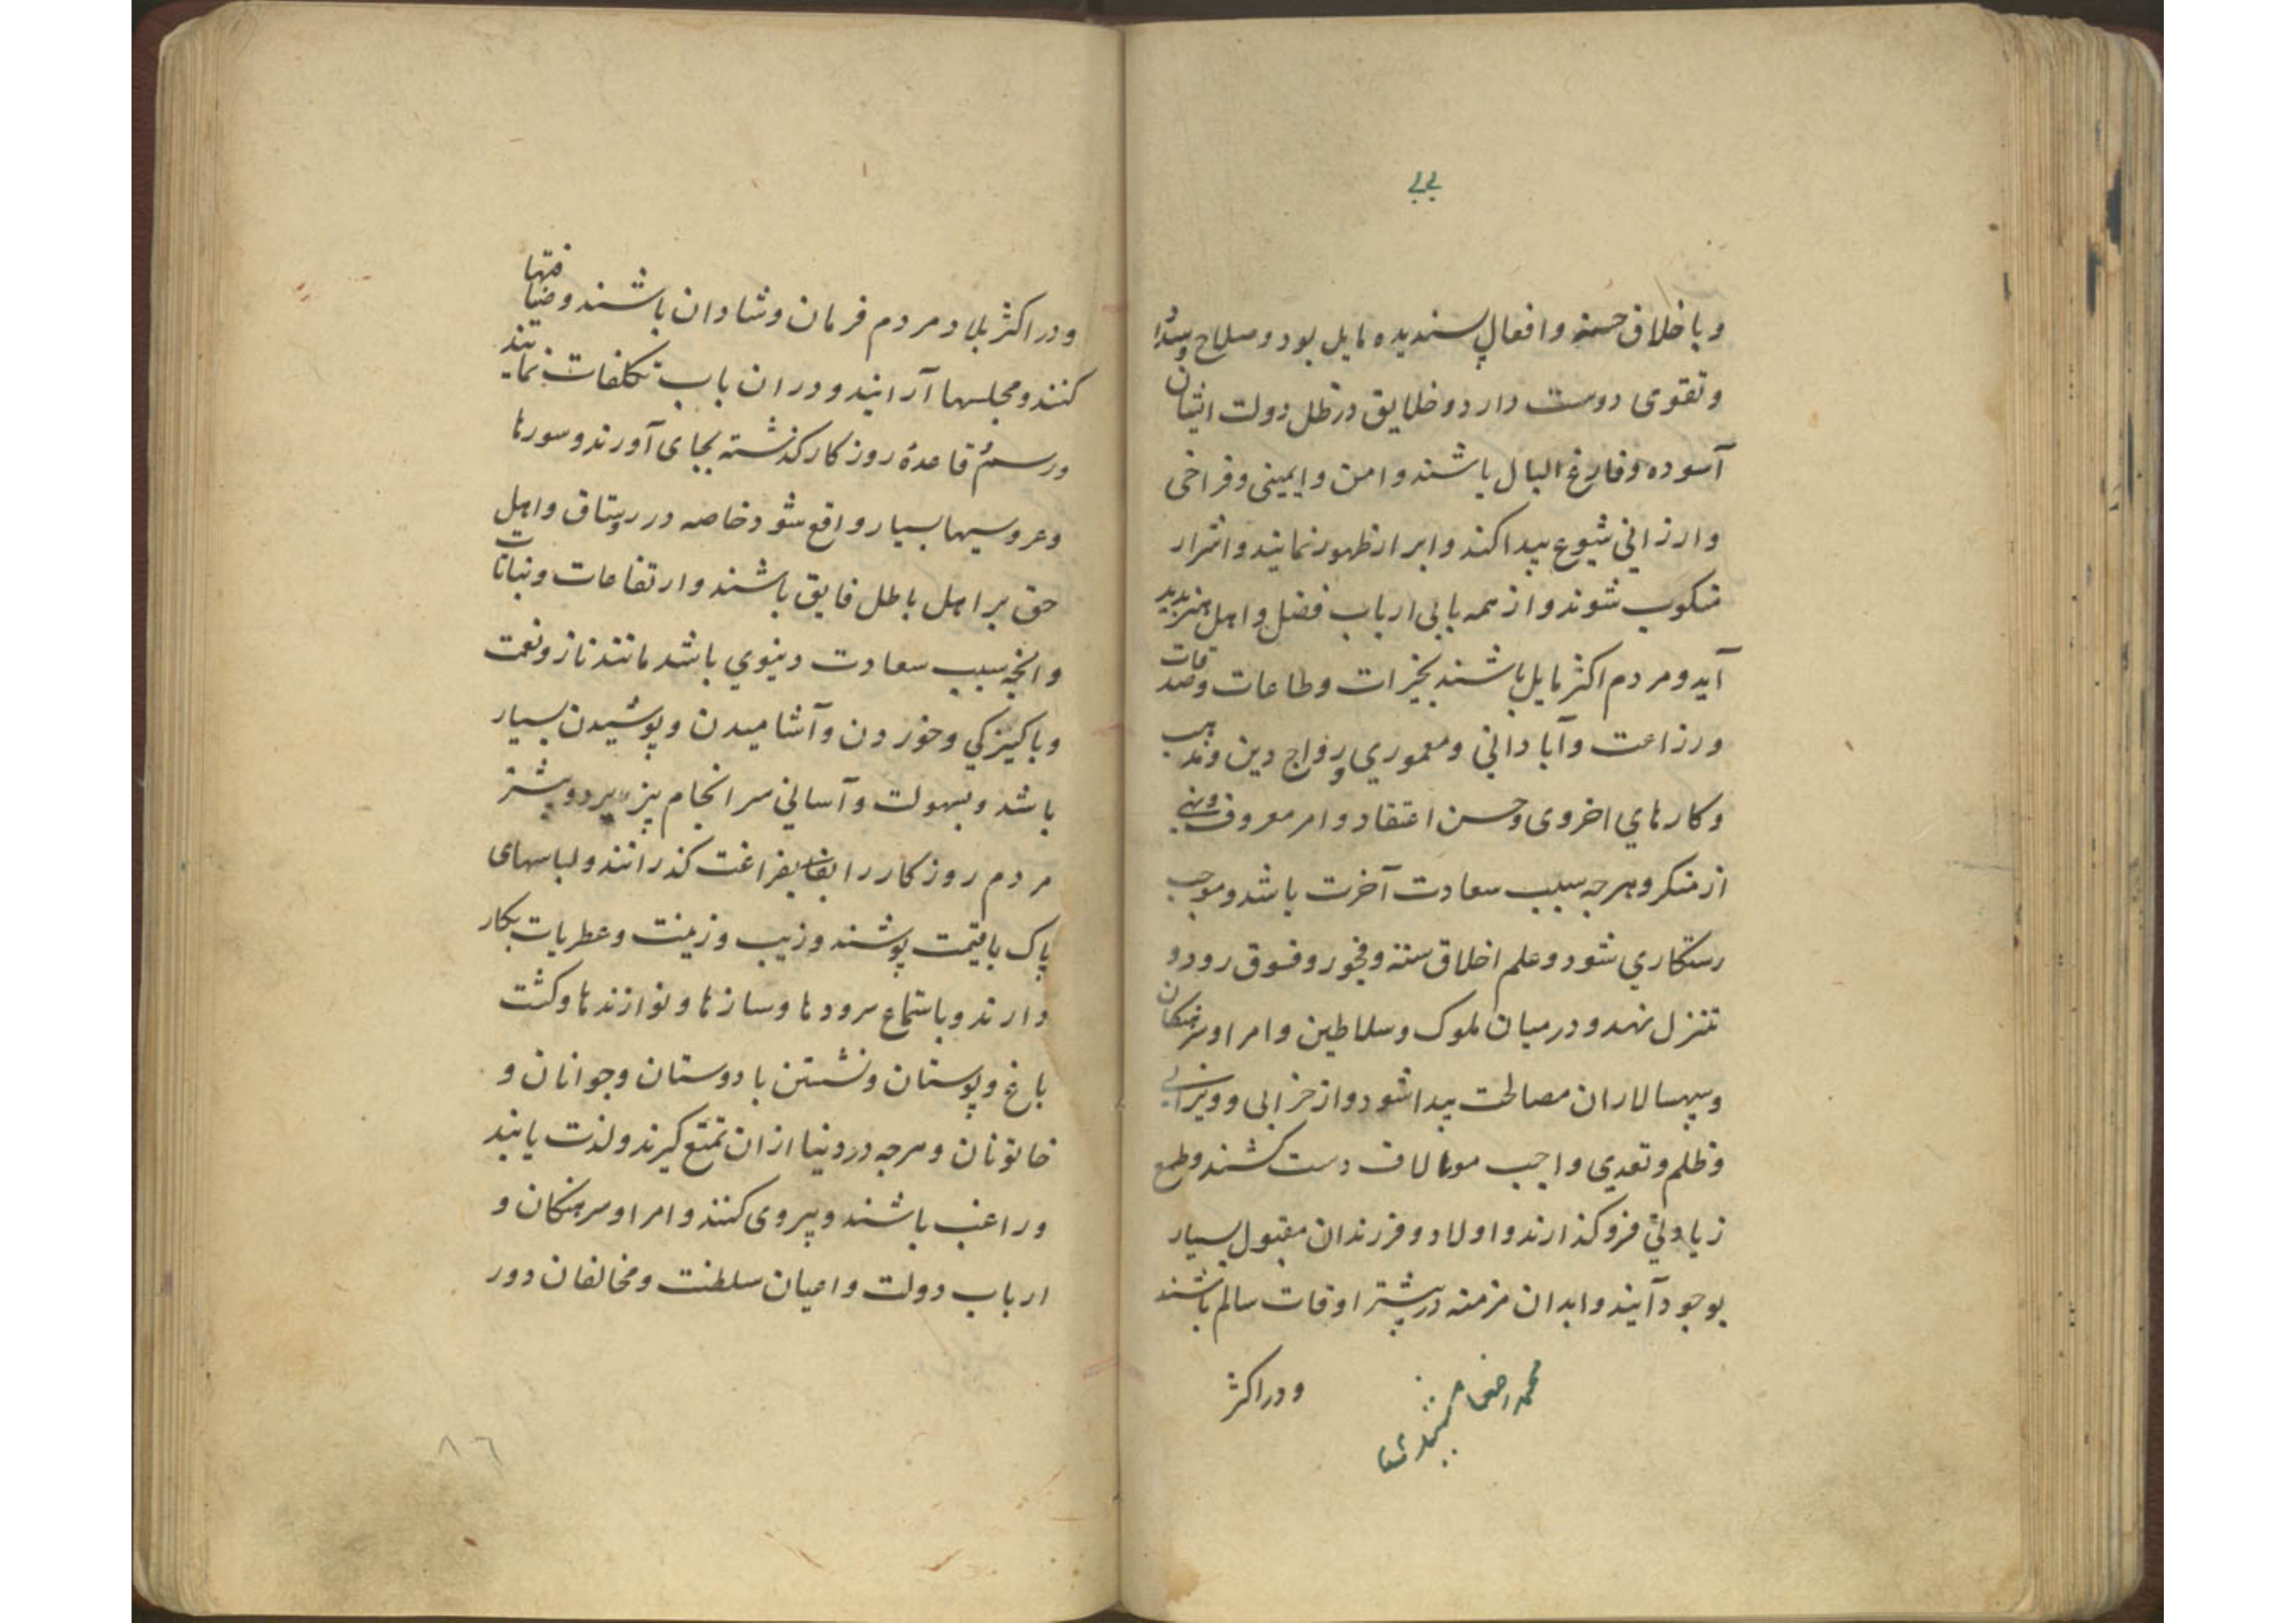 و باخلاق حسنه و افعال پسندیده مایل بود و صلاح و سداد
و تقوی دوست دارد و خلایق در ظل دولت ایشان
آسوده و فارغ البال باشند و امن و ایمینی و فراخی
و ارزانی شیوع پیدا کند و ابرار ظهور نمایند و اشرار
منکوب شوند و از همه بابی ارباب فضل و اهل هنر پدید
آید و مردم اکثر مایل باشند بخیرات و طاعات و صدقات
و زراعت و آبادانی و معموری و رواج دین و مذهب
و کارهای اخروی و حسن اعتقاد و امر معروف و نهی
از منکر و هرچه سبب سعادت آخرت باشد و موجب
رستکاری شود و علم اخلاق سته و فجور و فسوق رو دو
تنزل نهد و در میان ملوک و سلاطین و امرا و سرهنکان
و سپهسالاران مصالحت پیدا شود و از خرابی و ویرانی
و ظلم و تعدی واجب دست کشند و طمع
زیادتی فرو کذارند و اولاد و فرزندان مقبول بسیار
بوجود آیند و ابدان مزمنه در بیشتر اوقات سالم باشند
و در اکثر
و در اکثر بلاد مردم فرمان و شادان باشند و ضیافتها
کنند و مجلسها آرانید و در ان باب تکلفات نمایند
و رسم قاعدهٔ روز کار کذشته بجای آورند و سورها
و عروسیها بسیار واقع شود خاصه در رستاق و اهل
حق بر اهل باطل فایق باشند و ارتفاعات و نباتات
و انچه سبب سعادت دینوی باشد مانند ناز و نعمت
و پاکیزکی و خوردن و آشامیدن و پوشیدن بسیار
باشد و بسهولت و آسانی سرانجام پزیرد و بیشتر
مردم روز کار را بفراغت کذرانند و لباسهای
پاک باقیمت پوشند و زیب و زینت و عطریات بکار
دارند و باستماع سرودها و سازها و نوازندها و کشت
باغ و بوستان و نشستن با دوستان و جوانان و
خاتونان و هرچه در دنیا ازان تمتع کیرند و لذت یابند
و راغب باشند و پیروی کنند و امرا و سرهنکان و
ارباب دولت و اعیان سلطنت و مخالفان دور
۸۶